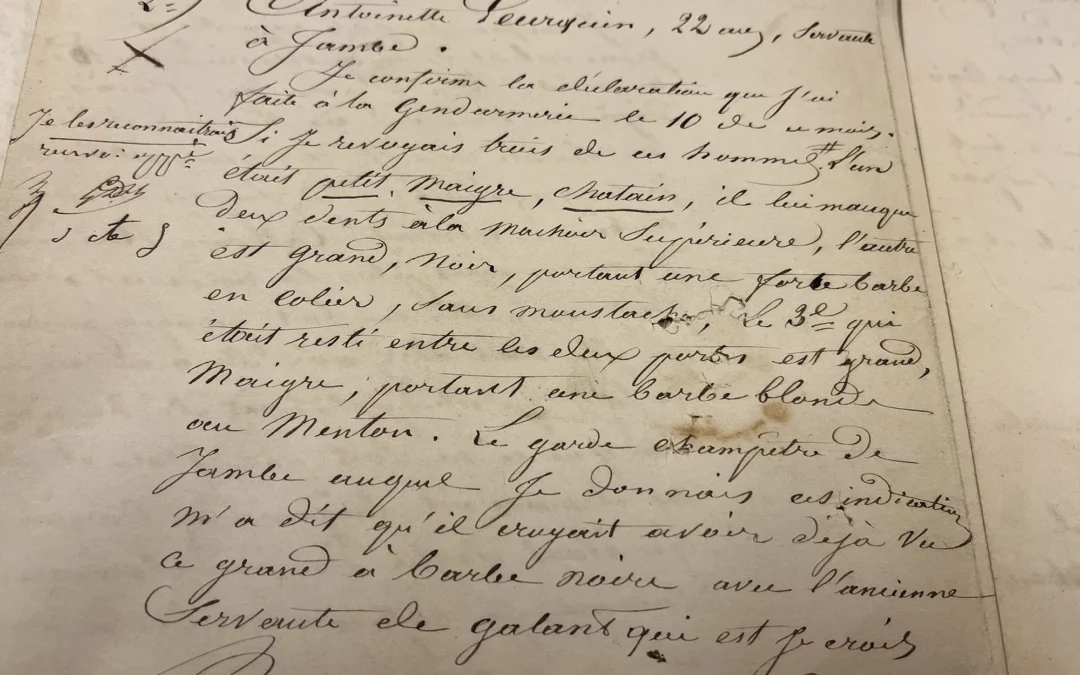 2°)
Antoinette Leurquin, 22 ans, servante
à Jambe.
Je confirme la déclaration que j'ai
faite à la Gendarmerie le 10 de ce mois.
Je les reconnaitrais
renvoi app
Si je revoyais trois de ces hommes # L'un
était petit, maigre, chatain, il lui manque
deux dents à la machoir supérieure, l'autre
est grand, noir, portant une forte barbe
en colier, sans moustache, Le 3e qui
était resté entre les deux portes est grand,
Maigre, portant une barbe blonde
au Menton. Le garde champêtre de
Jambe auquel Je donnais ces indications
m'a dit qu'il croyait avoir déjà vu
ce grand à barbe noire avec l'ancienne
Servante de galant qui est je crois